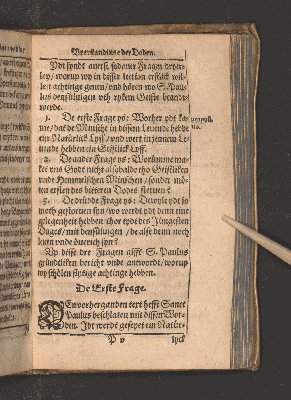 Vperstandinge der Doden.
Ydt syndt auerst sodaner Fragen dryer-
ley / worup wy in disser lection erstlick wil-
len achtinge geuen / vnd hören wo S. Pau-
lus densüluigen vth rykem Geiste beandt-
werde.
1. De erste Frage ys: Worher ydt ka-
me / dat de Minsche in dissem Leuende hebbe
ein Natürlick Lyff / vnd wert in jennem Le-
uende hebben ein Geistlick Lyff.
2. De ander Frage ys: Worümme ma-
ket vns Godt nicht alsobalde tho Geistliken
vnde Hemmelschen Minschen / sonder mö-
ten erst en des bitteren Dodes steruen?
3. De drüdde Frage ys: Dewyle ydt jo
moth gestoruen syn / wo werdt ydt denn eine
gelegenheit hebben thor tydt des Jüngesten
Dages / mit densüluigen / de alse denn noch
leuen vnde öuerich syn?
Vp disse dre Fragen gifft S. Paulus
gründtliken bericht vnde antwordt / worup
wy schölen flytige achtinge hebben.
De Erste Frage.
vorherganden text hefft Sanct
Paulus beschlaten mit dissen Wor-
den. Idt werdt geseyet ein Natür-
P v
lyck